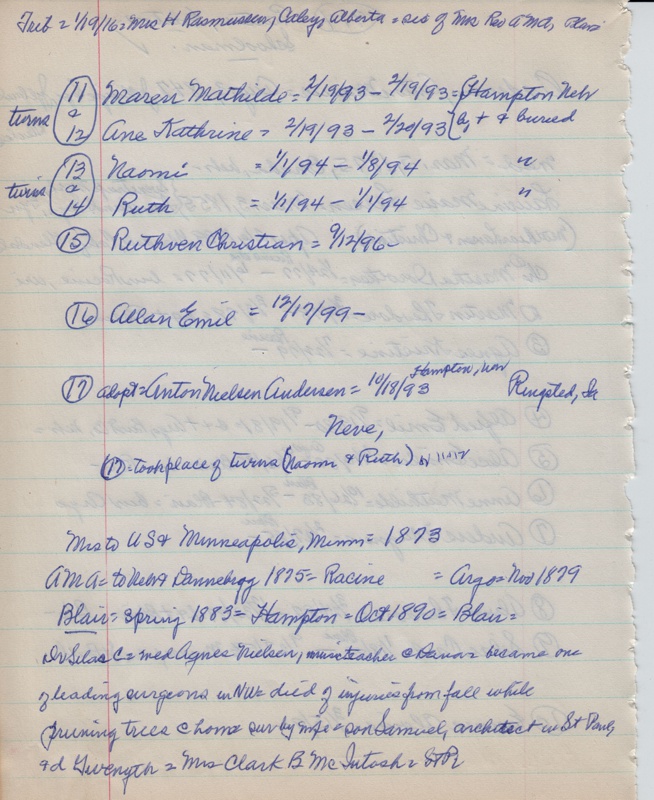 Trib = 1/19/16 = Mrs H Rasmussen, Caley, Alberta = sis of Mrs Rev AMA, Blair
turns (11) Maren Mathilde = 2/19/93 - 2/19/93 = (Hampton Nebr
& (12) Ane Kathrine = 2/19/93 - 2/20/93 (b, + & buried
turns (13) Naomi = 1/1/94 - 1/8/94 "
& (14) Ruth = 1/1/94 - 1/1/94 "
(15) Ruthven Christian = 9/12/96 -
(16) Allan Emil = 12/17/99 -
(17) adopt = Anton Nielsen Andersen = 10/18/93 Hampton, Ringsted, Ia
Neve,
(17) = took place of turns (Naomi & Ruth) or 11+12
Mrs to US & Minneapolis, Minn = 1873
AMA = to Nebr & Dannebrog 1875 = Racine = Argo = Nov 1879
Blair = Spring 1883 = Hampton = Oct 1890 = Blair =
Dr Silas C = med Agnes Nielsen, music teacher @ Dana = became one
of leading surgeons in NW = died of injuries from fall while
pruning trees @ home = sur by wife = son Samuel, architect in St Paul,
& d Gwenyth = Mrs Clark B McIntosh = StP